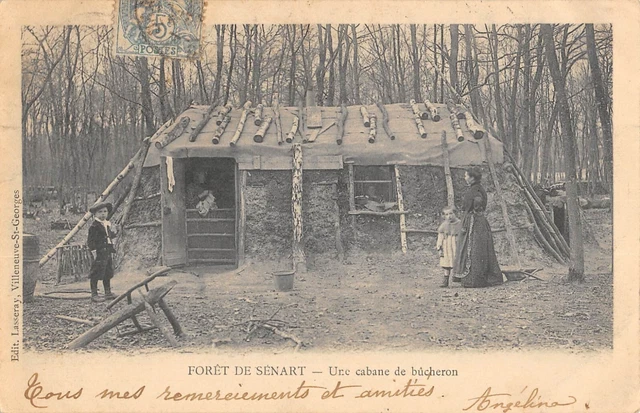 5
POSTES
Edit. Lasseray, Villeneuve-St-Georges
FORÊT DE SÉNART — Une cabane de bûcheron
Tous mes remerciements et amitiés.
Angélina